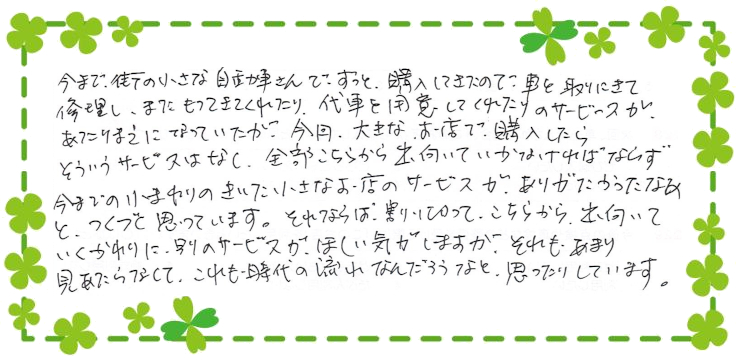 今まで、街の小さな自動車さんで、ずっと、購入してきたので、車を取りにきて
修理し、また、もってきてくれたり、代車を用意してくれたりのサービスが、
あたりまえになっていたが、今回、大きなお店で、購入したら
そういうサービスはなし、全部こちらから出向いていかなければならず
今までの小まわりのきいた小さなお店のサービスが、ありがたかったなぁ
と、つくづく思っています。それならば、割り切って、こちらから、出向いて
いくかわりに、別のサービスが、ほしい気がしますが、それも、あまり
見あたらなくて、これも時代の流れなんだろうなと、思ったりしています。